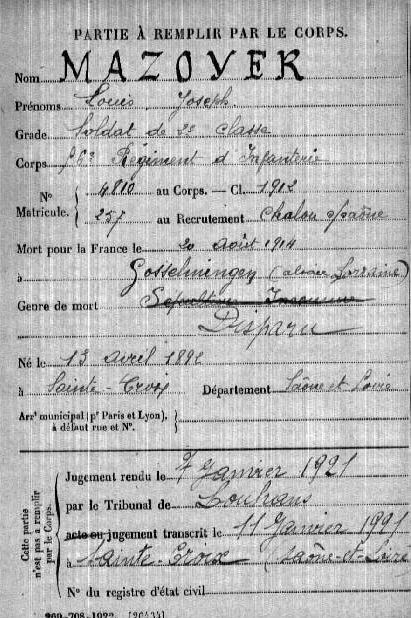 PARTIE À REMPLIR PAR LE CORPS.
Nom MAZOYER
Prénoms Louis Joseph
Grade Soldat de 2e classe
Corps 56e Régiment d'Infanterie
N° Matricule. { 4810 au Corps. — Cl. 1912
257 au Recrutement Chalon s/Saône
Mort pour la France le 20 août 1914
à Gosselmingen (alsace Lorraine)
Genre de mort Sépulture Inconnue
Disparu
Né le 13 avril 1892
à Sainte-Croix Département Saône et Loire
Arrt municipal (pr Paris et Lyon),
à défaut rue et N°.
Cette partie n'est pas à remplir par le Corps.
Jugement rendu le 7 Janvier 1921
par le Tribunal de Louhans
acte ou jugement transcrit le 11 Janvier 1921
à Sainte-Croix (Saône-et-Loire
N° du registre d'état civil